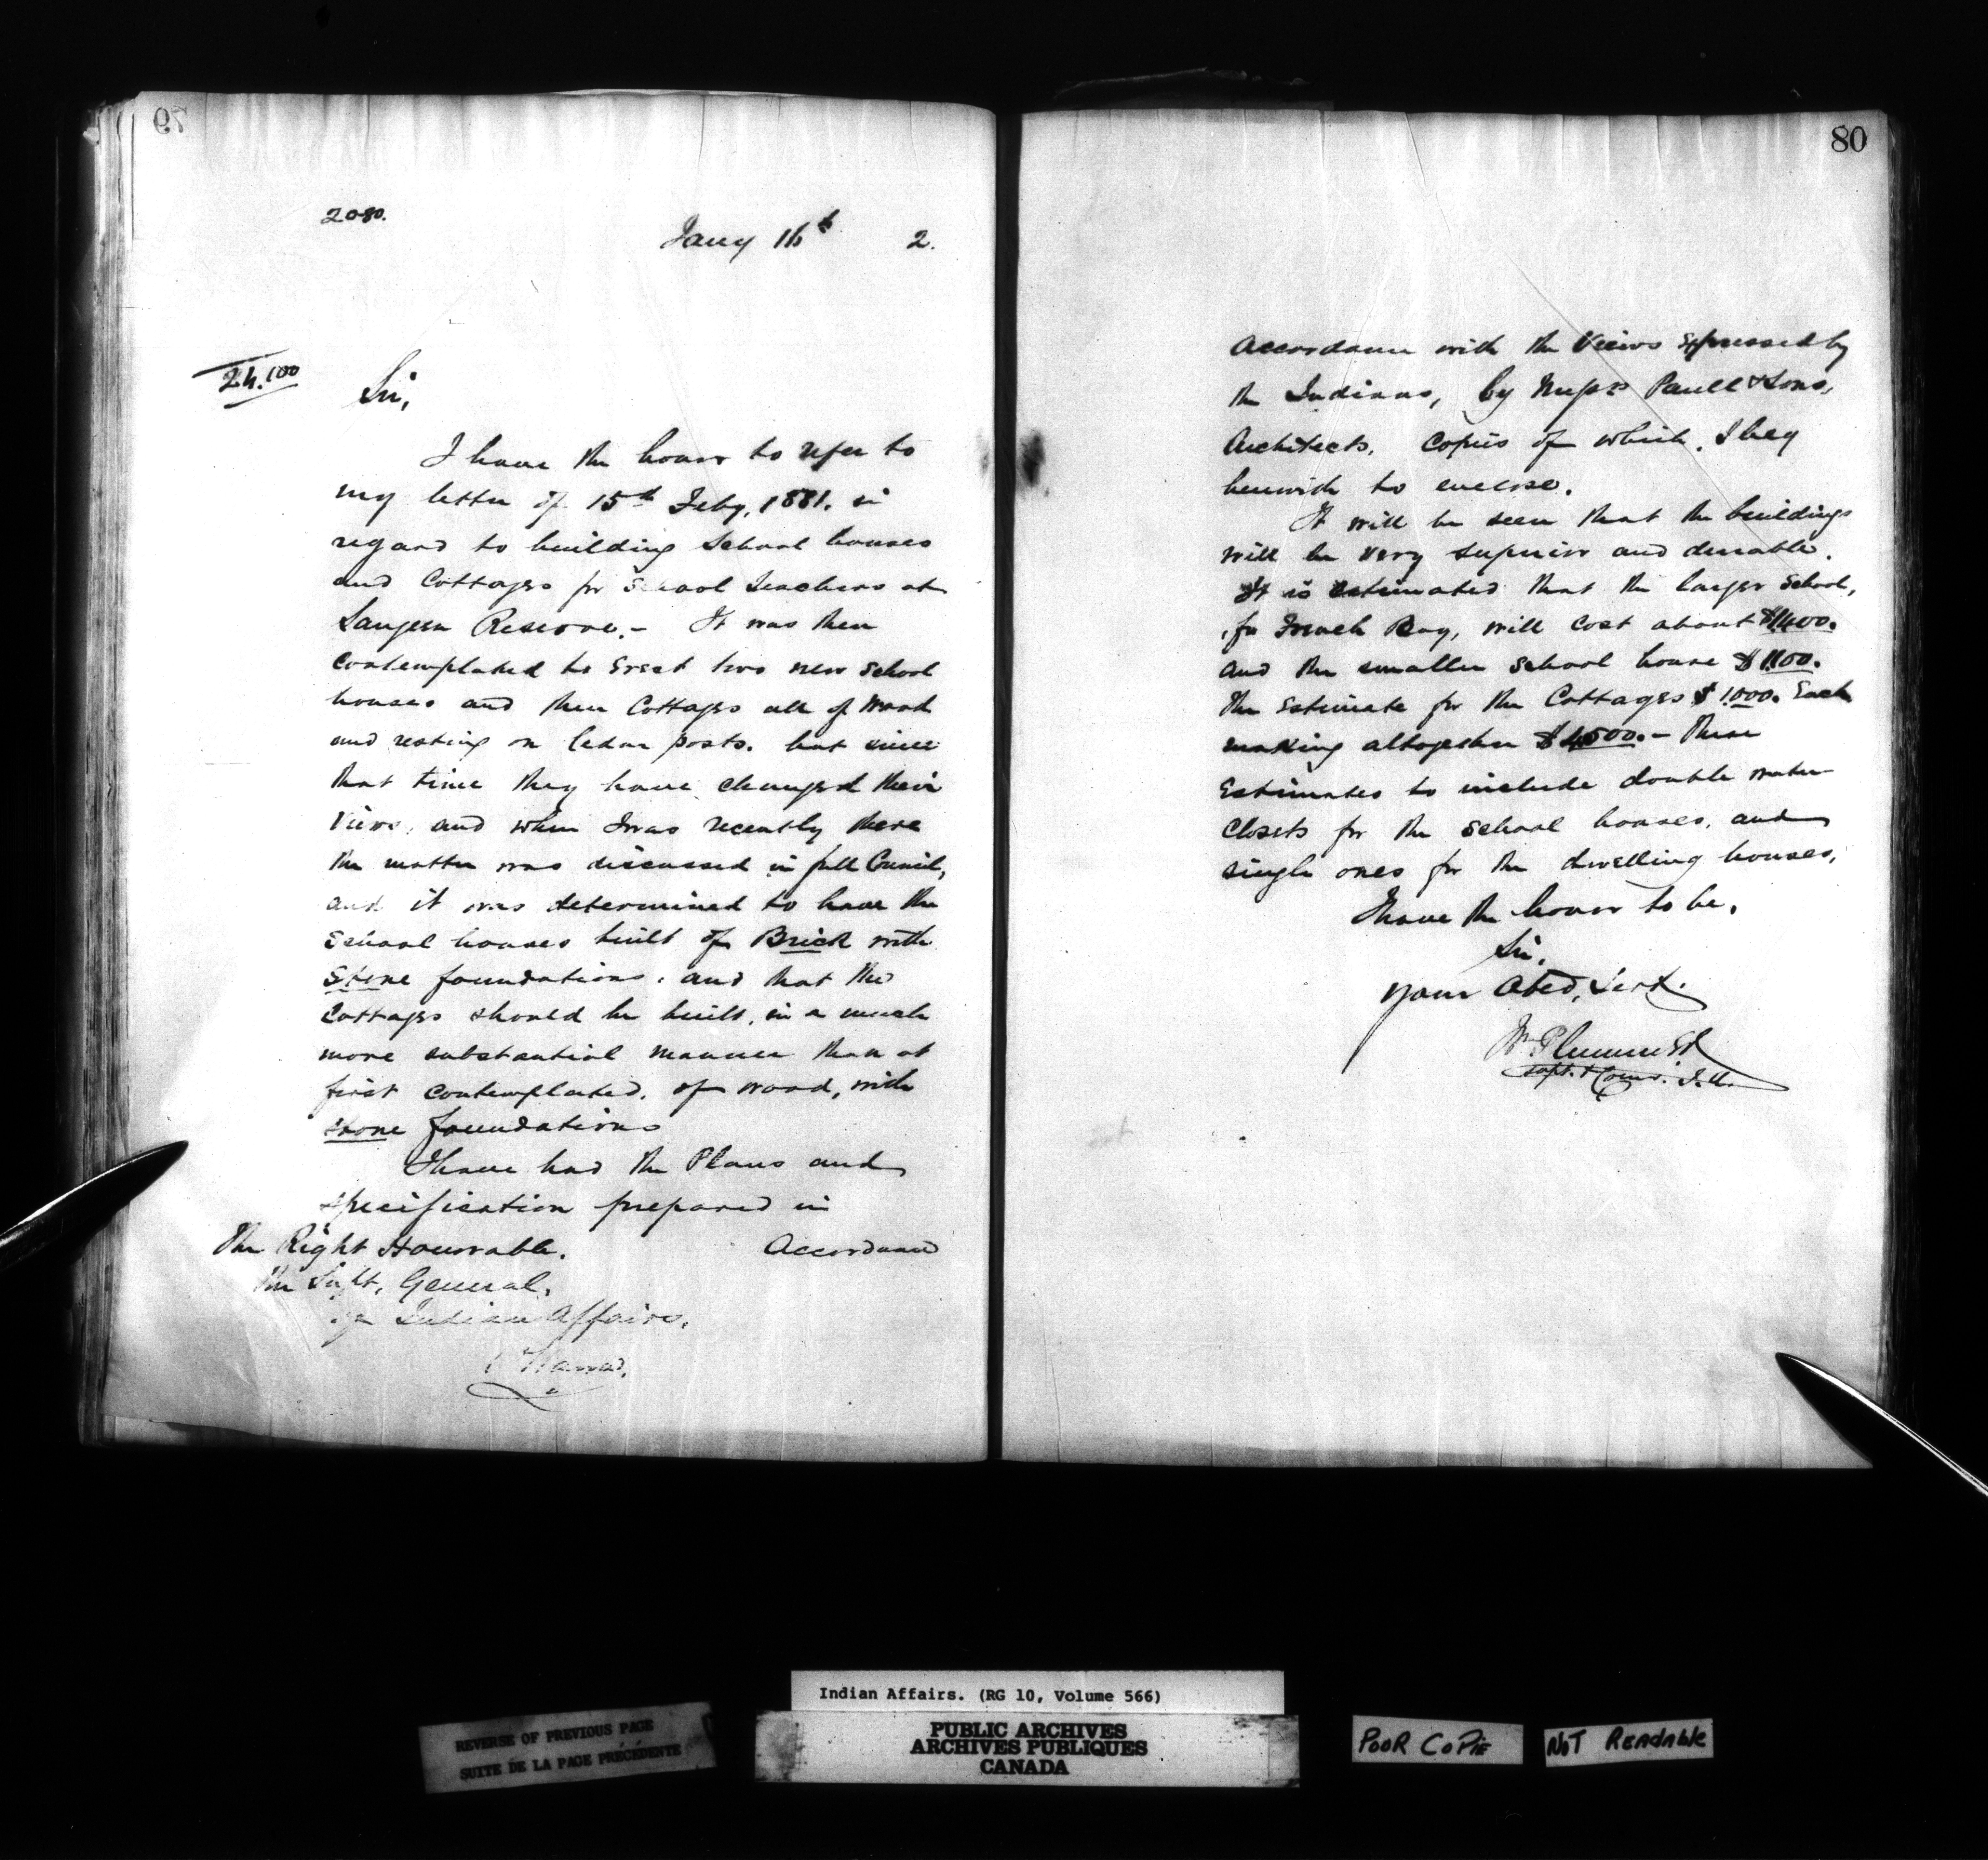 79
2080.
Jany 16th 2.
24.100
Sir,
I have the honor to refer to
my letter of 15th Feby, 1881. in
regard to building School houses
and Cottages for School Teachers at
Saugeen Reserve. - It was then
contemplated to Erect two new School
houses and then Cottages all of Wood
and resting on Cedar posts. but since
that time they have changed their
views, and when I was recently there
the matter was discussed in full Council,
and it was determined to have the
School houses built of Brick with
Stone foundations, and that the
Cottages should be built, in a much
more substantial manner than at
first contemplated, of wood, with
stone foundations
I have had the Plans and
specification prepared in
Accordance
The Right Honorable.
The Supt, General,
of Indian Affairs,
Ottawa.
80
Accordance with the Views Expressed by
the Indians, by Messrs Paull & Sons,
Architects. Copies of which, I beg
herewith to enclose.
It will be seen that the buildings
will be very superior and durable.
It is estimated that the larger School,
for French Bay, will cost about $1400.
and the smaller School house $1100.
The Estimate for the Cottages $1.000. Each
making altogether $4500. - These
Estimates to include double water
closets for the School houses, and
single ones for the dwelling houses,
I have the honor to be,
Sir,
Your Obed, Servt.
Wm Plummer
Supt. & Comr. I.A.
Indian Affairs. (RG 10, Volume 566)
PUBLIC ARCHIVES
ARCHIVES PUBLIQUES
CANADA
REVERSE OF PREVIOUS PAGE
SUITE DE LA PAGE PRÉCÉDENTE
POOR COPIE
NOT READABLE